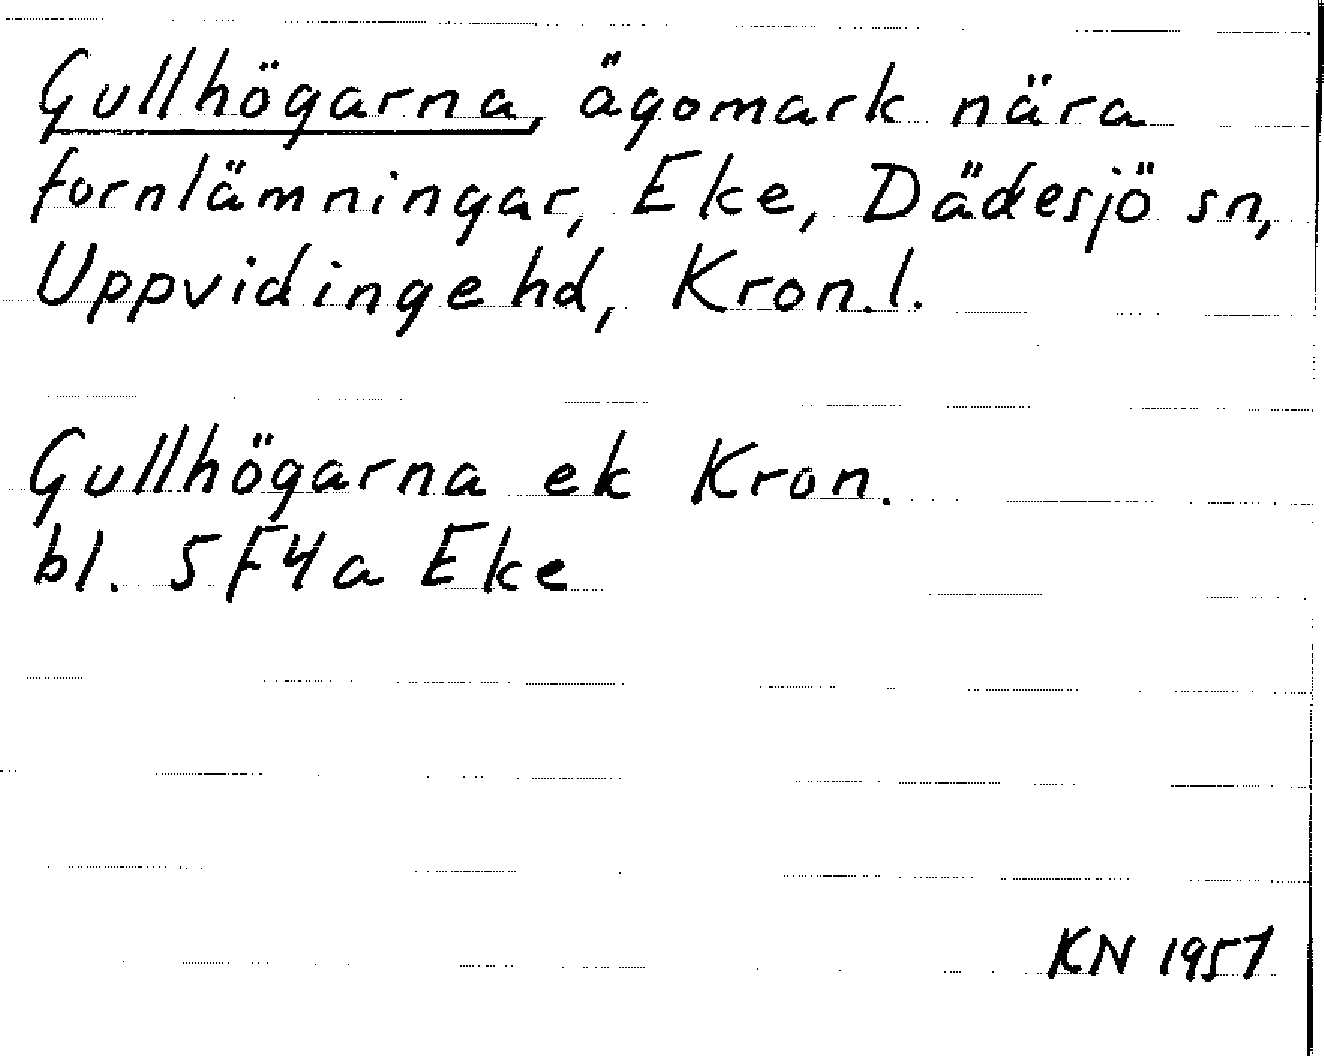 Gullhögarna, ägomark nära
fornlämningar, Eke, Dädesjö sn,
Uppvidinge hd, Kron.l.
Gullhögarna ek Kron.
bl. 5F4a Eke
KN 1957